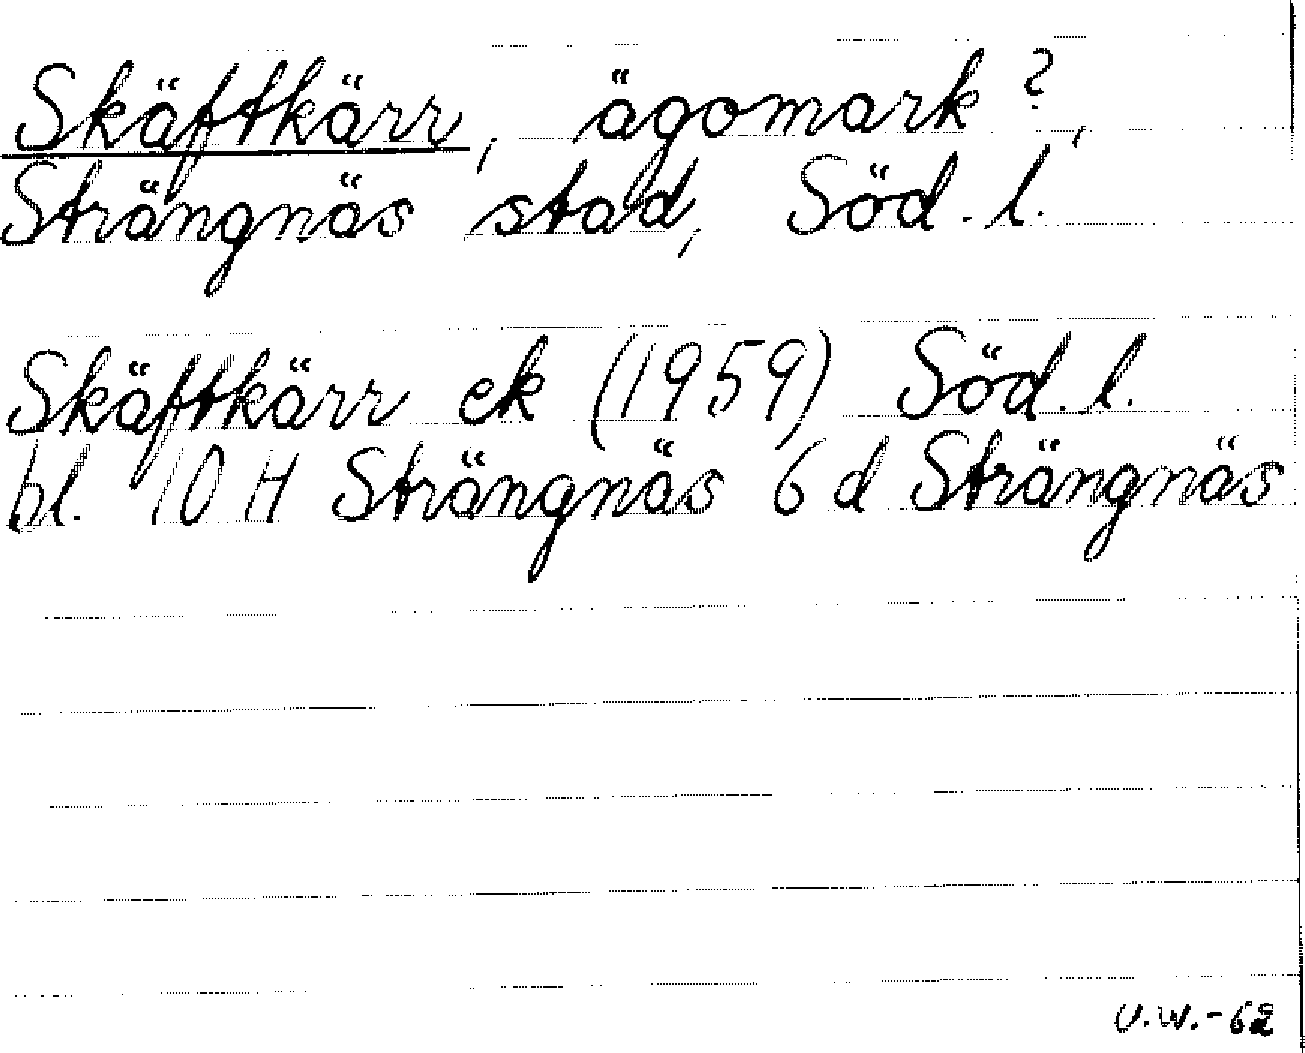 Skäftkärr, ägomark?,
Strängnäs stad, Söd. l.
Skäftkärr ek (1959) Söd. l.
bl. 10 H Strängnäs 6 d Strängnäs
U.W.-62